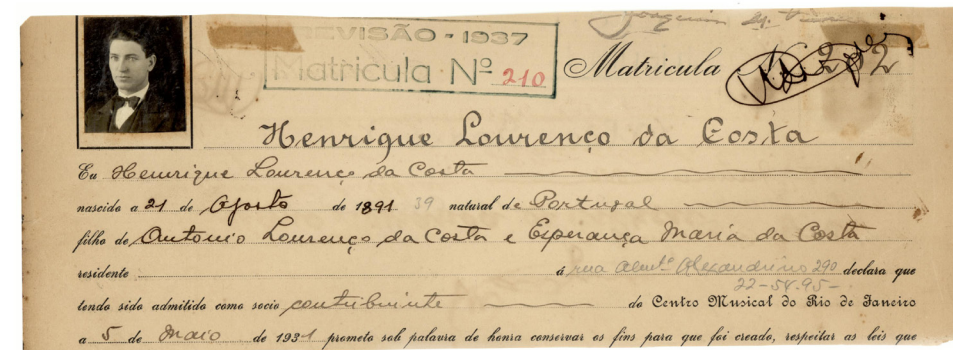 Joaquim
REVISÃO - 1937
Matricula Nº 210
Matricula 2 2
Henrique Lourenço da Costa
Eu Henrique Lourenço da Costa
nascido a 21 de Agosto de 1891 39 natural de Portugal
filho de Antonio Lourenço da Costa e Esperança Maria da Costa
residente á rua Almte Alexandrino 290 declara que
22-5495-
tendo sido admitido como socio contribuinte do Centro Musical do Rio de Janeiro
a 5 de Maio de 1931 prometo sob palavra de honra conservar os fins para que foi creado, respeitar as leis que